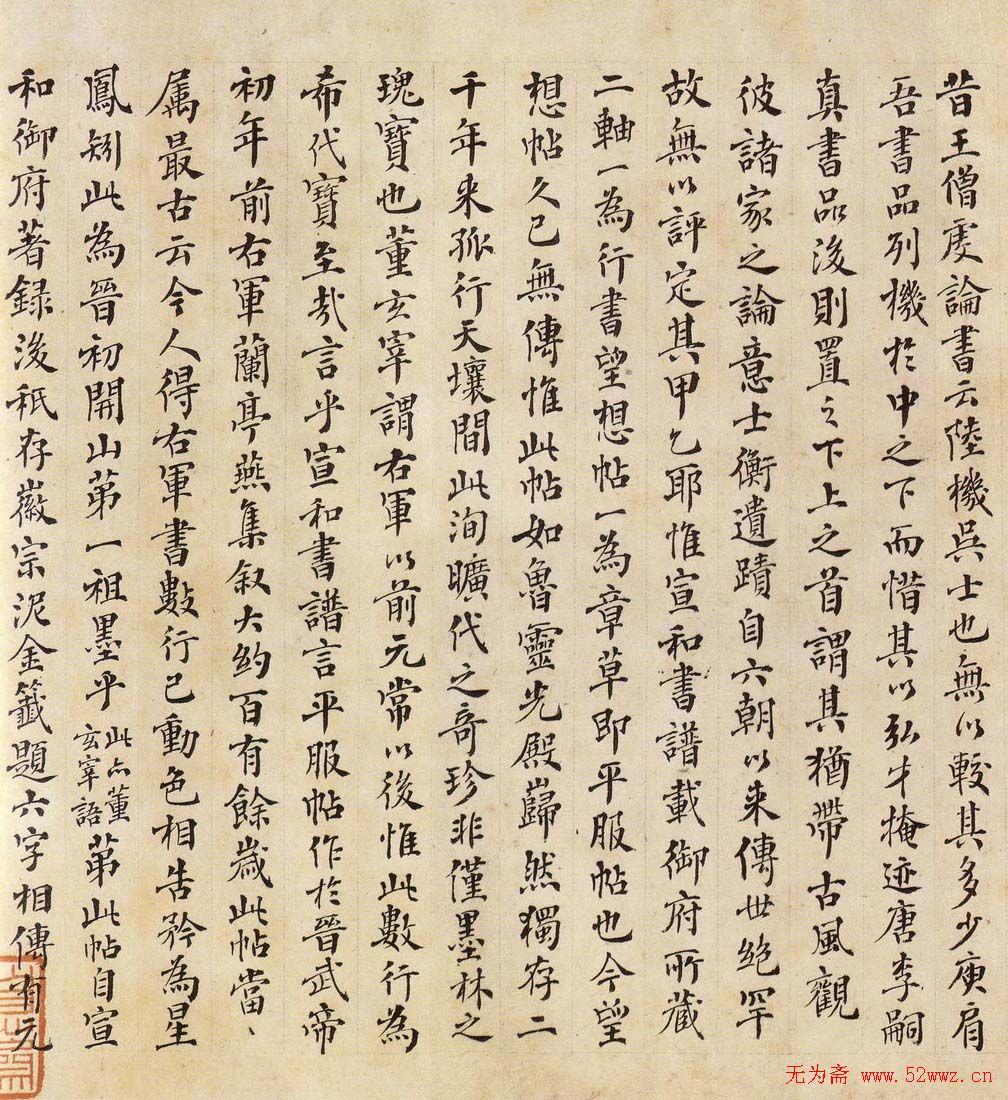 昔王僧虔論書云陸機吳士也無以較其多少庾肩
吾書品列機於中之下而惜其以弘才掩迹唐李嗣
真書品後則置之下上之首謂其猶帶古風觀
彼諸家之論意士衡遺蹟自六朝以來傳世絕罕
故無以評定其甲乙耶惟宣和書譜載御府所藏
二軸一為行書望想帖一為章草即平服帖也今望
想帖久已無傳惟此帖如魯靈光殿巋然獨存二
千年來孤行天壤間此洵曠代之奇珍非僅墨林之
瑰寶也董玄宰謂右軍以前元常以後惟此數行為
希代寶至哉言乎宣和書譜言平服帖作於晉武帝
初年前右軍蘭亭燕集敘大約百有餘歲此帖當、
属最古云今人得右軍書數行已動色相告矜為星
鳳矧此為晉初開山第一祖墨乎此亦董玄宰語第此帖自宣
和御府著錄後秖存徽宗泥金籤題六字相傳有元
无为斋 www.52wwz.cn